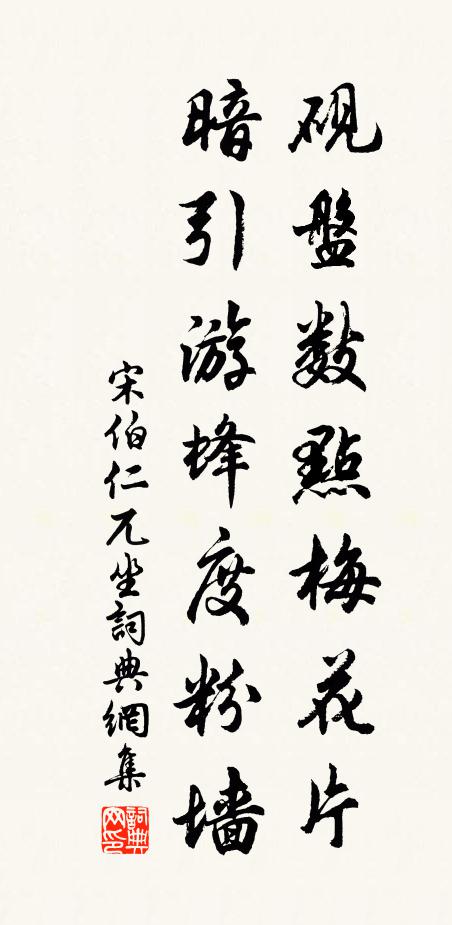 硯盤數點梅花片
暗引游蜂度粉墙
宋伯仁兀坐詞典網集
詞典网印